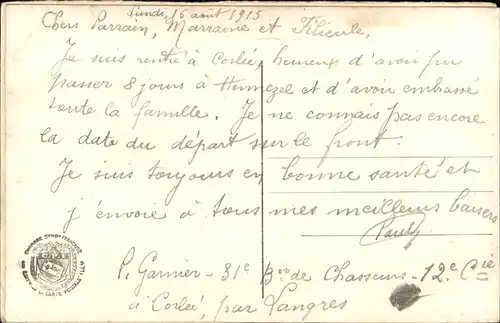 Lundi, 16 août 1915
Chers Parrain, Marraine et Filleule,
Je suis rentré à Corlée, heureux d'avoir pu
passer 8 jours à Hennezel et d'avoir embrassé
toute la famille. Je ne connais pas encore
la date du départ sur le front.
Je suis toujours en bonne santé et
j'envoie à tous mes meilleurs baisers
Paul
P. Garnier - 31e Bon de Chasseurs - 12e Cie
à Corlée, par Langres